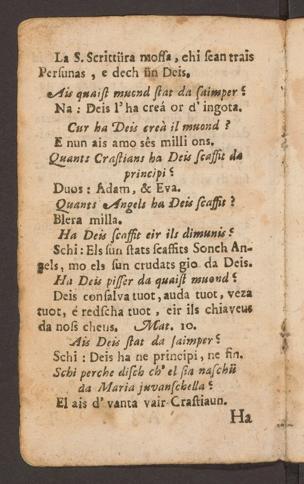 La S. Scrittüra mossa, chi sean trais
Persunas, e dech ün Deis.
Ais quaist muond stat da saimper?
Na: Deis l'ha creá or d'ingota.
Cur ha Deis creà il muond?
E nun ais amo sés milli ons.
Quants Crastians ha Deis scaffit da
principi?
Duos: Adam, & Eva.
Quants Angels ha Deis scaffit?
Blera milla.
Ha Deis scaffit eir ils dimunis?
Schi: Els sun stats scaffits Sonch An-
gels, mo els sun crudats gio da Deis.
Ha Deis pisser da quaist muond?
Deis consalva tuot, auda tuot, veza
tuot, é redscha tuot, eir ils chiaveus
da noss cheus. Mat. 10.
Ais Deis stat da saimper?
Schi: Deis ha ne principi, ne fin.
Schi perche disch ch'el sia naschü
da Maria juvanschella?
El ais d'vanta vair Crastiaun.
Ha